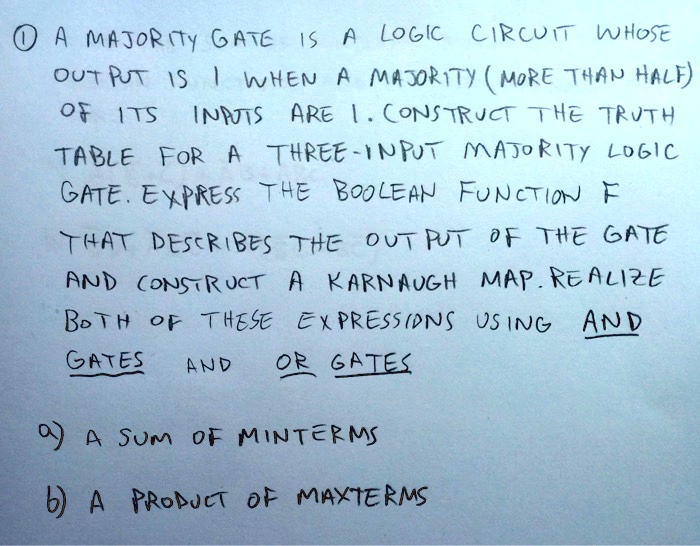 ① A MAJORITY GATE IS A LOGIC CIRCUIT WHOSE
OUTPUT IS 1 WHEN A MAJORITY (MORE THAN HALF)
OF ITS INPUTS ARE 1. CONSTRUCT THE TRUTH
TABLE FOR A THREE-INPUT MAJORITY LOGIC
GATE. EXPRESS THE BOOLEAN FUNCTION F
THAT DESCRIBES THE OUTPUT OF THE GATE
AND CONSTRUCT A KARNAUGH MAP. REALIZE
BOTH OF THESE EXPRESSIONS USING AND
GATES AND OR GATES
a) A SUM OF MINTERMS
b) A PRODUCT OF MAXTERMS